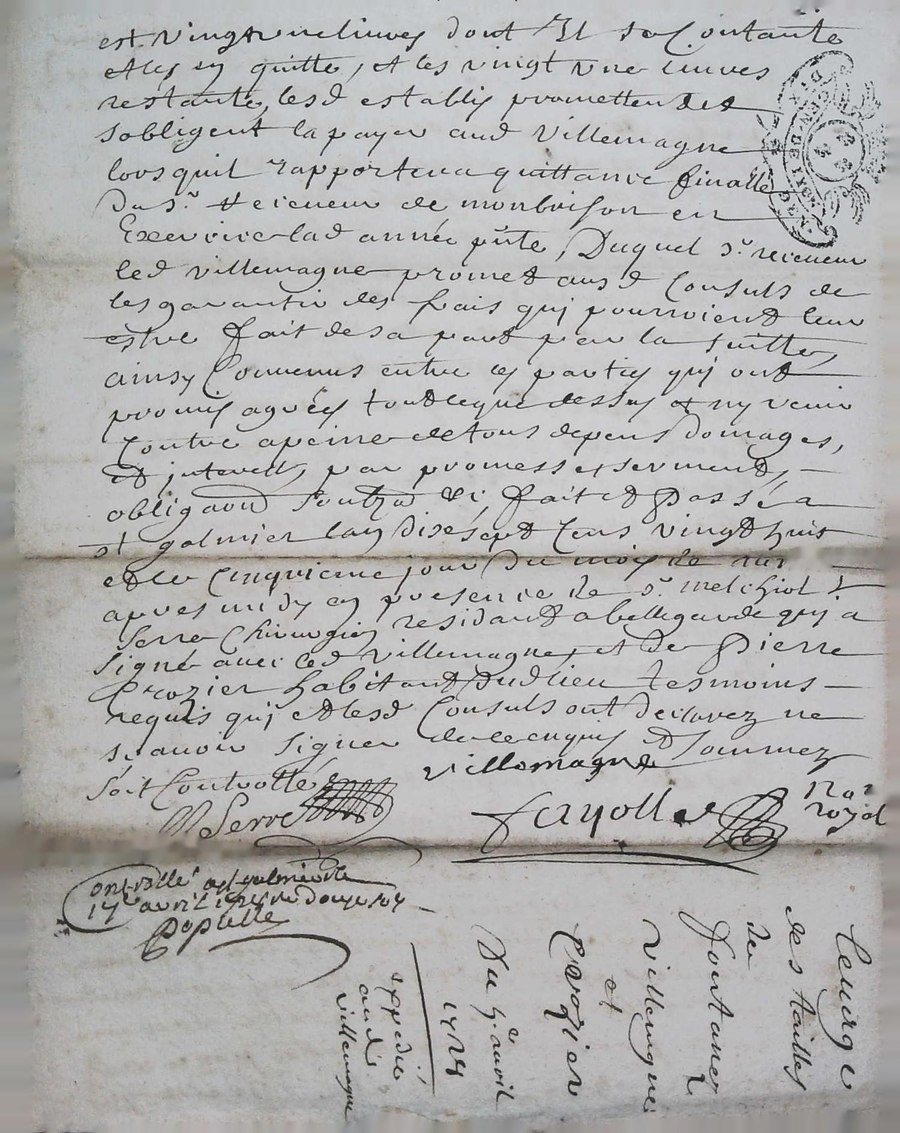 est vingt une livres dont Il se Contante
et les en quitte, et les vingt une livres
restante, lesd establis promettent et
sobligent la payer aud Villemagne
lors quil rapportera quittance finalle
Du sr. Receveur de monbrison en
Exercice lad année pnte, Duquel sr. receveur
led villemagne promet ausd Consuls de
les garantir des frais qui pourroient leur
estre fait de sa part par la suitte,
ainsy Convenus entre les parties quj ont
promis agréés tout ce que dessus et ny venir
Contre a peine de tous depens domages,
et interests, par promesse et serment,
obligaon fait et Passé a
st galmier lan dix sept Cens vingt huit
et le Cinquieme jour Du mois de
apres midy en presence de sr. melchiol
Serre Chirurgien residant a bellegarde quj a
signé avec led villemagne, et de Pierre
Crozier habitant dud lieu tesmoins
requis quj et lesd Consuls ont declarez ne
scavoir signer de ce enquis et sommez
soit Controllé villemagne
Serre fayolle nore royal
Controllé a st galmier le
17e avril 1728 re douze sols
des tailles
de
fontanes
villemagne
et
Crozier
Du 5e avril
1728
expedié
aud
villemagne